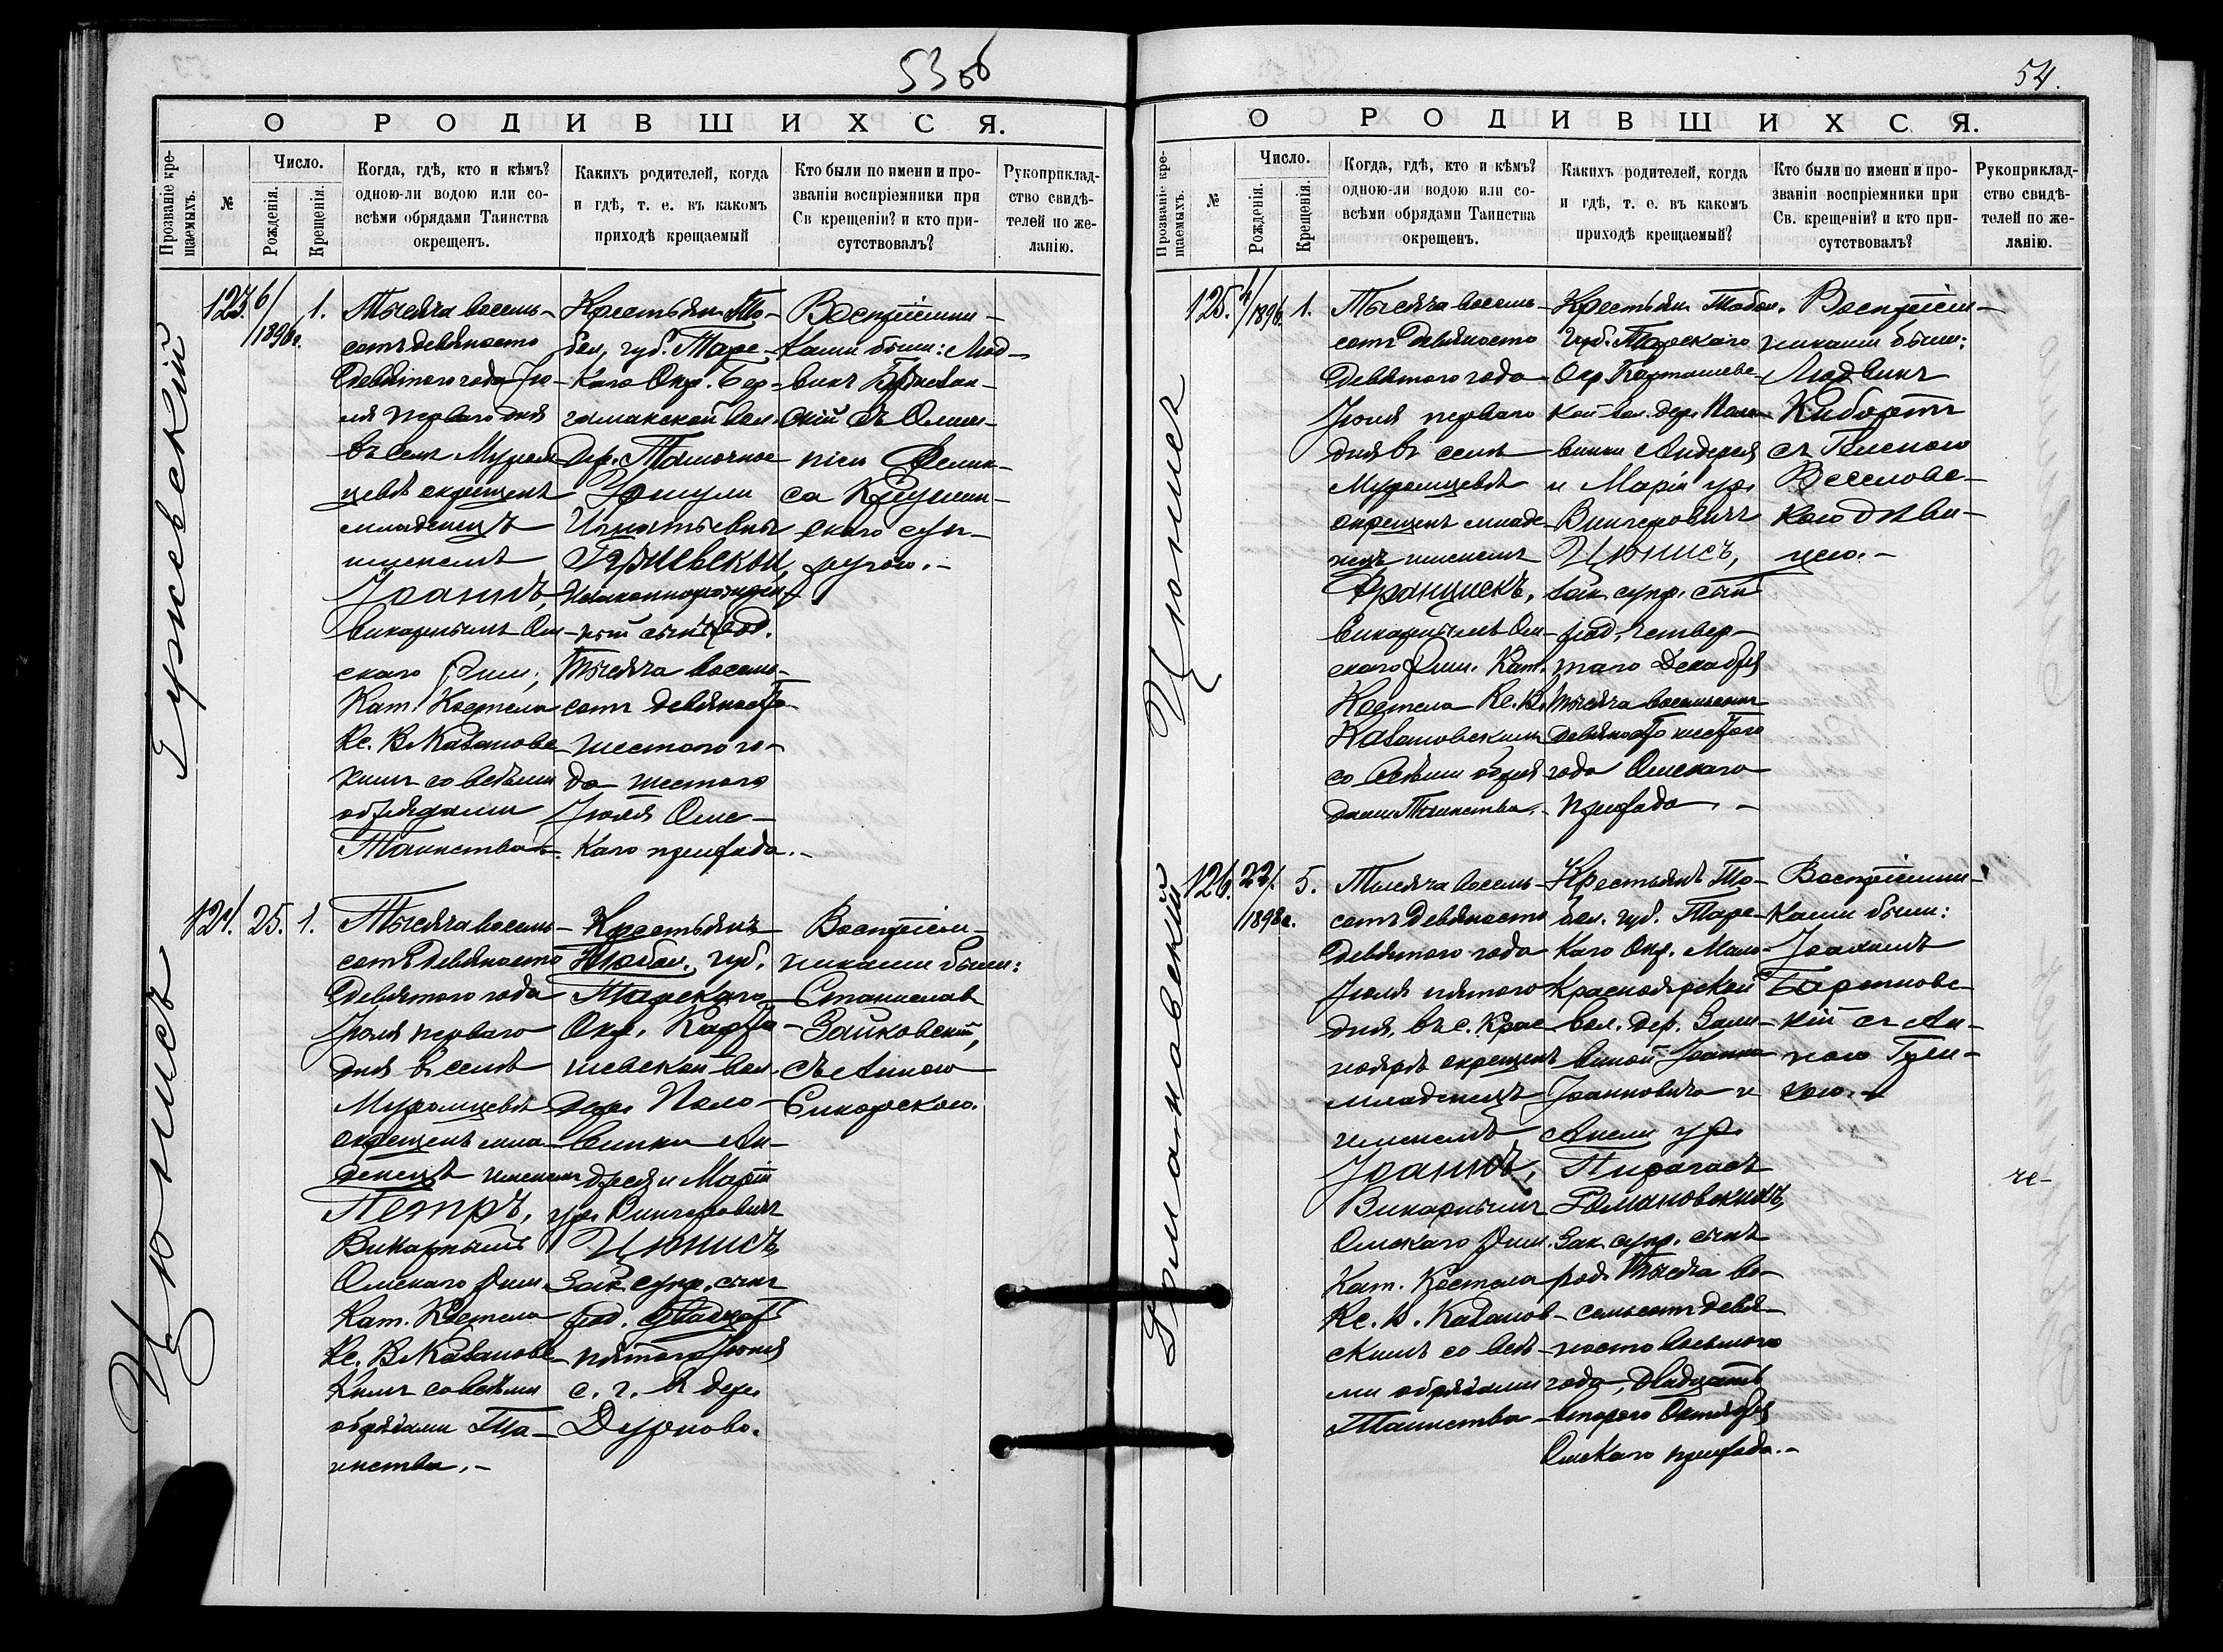 53 об
О РОДИВШИХСЯ.
Прозваніе кре-
щаемыхъ.
№
Число.
Рожденія.
Крещенія.
Когда, гдѣ, кто и кѣмъ?
одною-ли водою или со-
всѣми обрядами Таинства
окрещенъ.
Какихъ родителей, когда
и гдѣ, т. е. въ какомъ
приходѣ крещаемый
Кто были по имени и про-
званіи воспріемники при
Св крещеніи? и кто при-
сутствовалъ?
Рукоприклад-
ство свидѣ-
телей по же-
ланію.
123.
6/
1896г.
1.
Тысяча восемь-
сотъ девяносто
девятого года Iю-
ля перваго дня
въ селѣ Муром-
цевѣ окрещенъ
младенецъ
именемъ
Iоаннъ,
викарнымъ Ом-
скаго Рим.
Кат. Костела
Кс. В. Казановс-
кимъ со всѣми
обрядами
Таинства.
Крестьян. То-
бол. губ. Тарс-
каго Окр. Бер-
гамакской вол.
дер.
Уршули
Игнатьевны
незаконнорожден-
ный сынъ род.
тысяча восемь-
сотъ девяносто
шестого го-
да шестого
Iюля Омс-
каго прихода.-
Воспріемни-
ками были: Люд-
викъ
скій съ
ніею
са
скаго суп-
ругою.-
124.
25.
1.
Цюнисъ
Тысяча восемь-
сотъ девяносто
девятого года
Iюля перваго
дня въ селѣ
Муромцевѣ
окрещенъ мла-
денецъ именемъ
Петръ,
Викарнымъ
Омскаго Рим.
Кат. Костела
Кс. В. Казановс-
кимъ со всѣми
обрядами Та-
инства.-
Крестьянъ
Тобол. губ.
Тарскаго
Окр. Карта-
шевской вол.
дер. Поло-
винки Ан-
дрея и Маріи
ур. Винцеровичъ
Цюнисъ,
Зак. супр. сынъ
род. двадцать
пятого Iюня
с. г. въ дер.
Дурново.
Воспріем-
никами были:
Станиславъ
Зайковскій,
съ Анною
Сикорскою.
54.
О РОДИВШИХСЯ.
Прозваніе кре-
щаемыхъ.
№
Число.
Рожденія.
Крещенія.
Когда, гдѣ, кто и кѣмъ?
одною-ли водою или со-
всѣми обрядами Таинства
окрещенъ.
Какихъ родителей, когда
и гдѣ, т. е. въ какомъ
приходѣ крещаемый?
Кто были по имени и про-
званіи воспріемники при
Св. крещеніи? и кто при-
сутствовалъ?
Рукоприклад-
ство свидѣ-
телей по же-
ланію.
Цюнисъ
125.
4/
1896.
1.
Тысяча восемь-
сотъ девяносто
девятого года
Iюля перваго
дня въ селѣ
Муромцевѣ
окрещенъ младе-
нецъ именемъ
Францискъ,
викарнымъ Ом-
скаго Рим. Кат.
Костела Кс. В.
Казановскимъ
со всѣми обря-
дами Таинства.-
Крестьян. Тобол.
губ. Тарскаго
Окр. Карташевс-
кой вол. дер. Поло-
винки Андрея
и Маріи ур.
Винцеровичъ
Цюнисъ,
зак. супр. сынъ
род. четвер-
таго Декабря
тысяча восемьсотъ
девяносто шестого
года Омскаго
прихода.-
Воспріем-
никами были:
Людвикъ
Кибортъ
съ Еленою
Веселовс-
кою дѣви-
цею.-
Романовскій
126.
22/
1898г.
5.
Тысяча восемь-
сотъ девяносто
девятого года
Iюля пятого
дня, въ с. Крас-
ноярѣ окрещенъ
младенецъ
именемъ
Iоаннъ,
Викарнымъ
Омскаго Рим.
Кат. Костела
Кс. В. Казанов-
скимъ со всѣ-
ми обрядами
Таинства-
Крестьянъ То-
бол. губ. Тарс-
каго Окр. Мало-
Красноярской
вол. дер. Зали-
виной Iоанна
Iоанновича и
Анели ур.
Пирагасъ
Романовскихъ,
Зак. супр. сынъ
род. тысяча во-
семьсотъ девя-
носто восьмого
года, двадцать
второго Октября
Омскаго прихода.-
Воспріемни-
ками были:
Iоакимъ
Бартновс-
кій съ Ан-
ною
кою.-